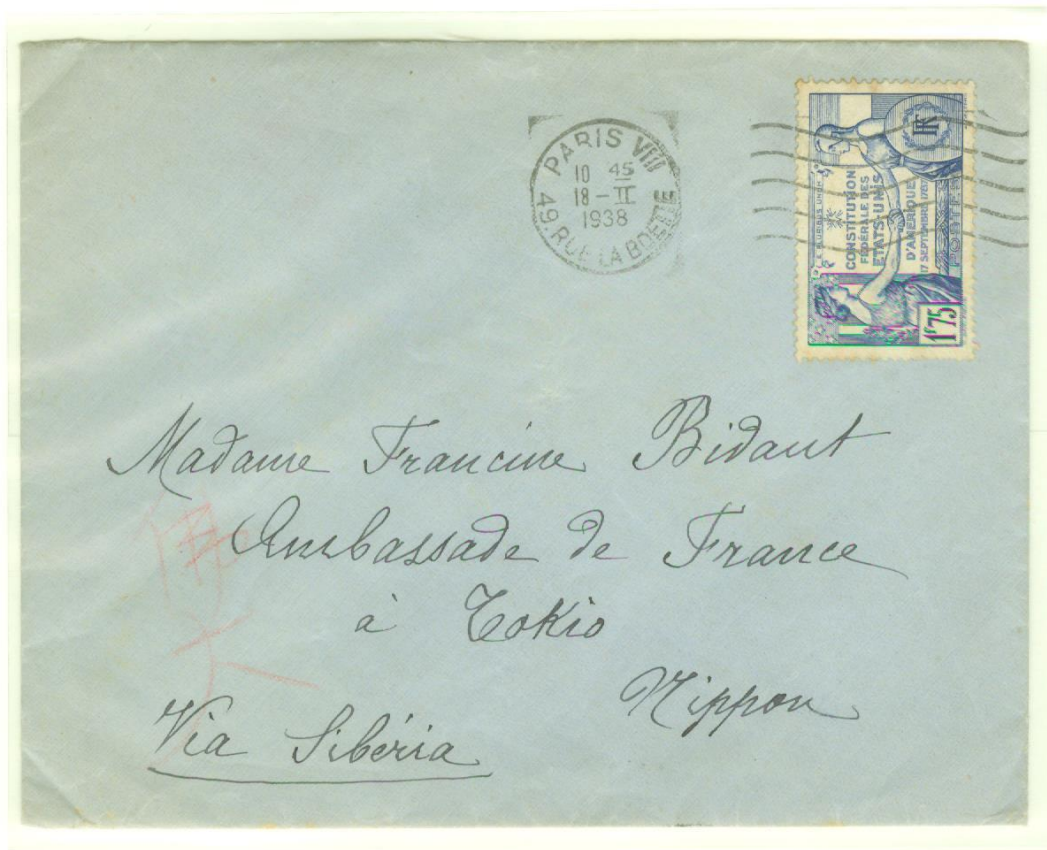 PARIS VIII
10 45
18 - II
1938
49. RUE LA BOETIE
E PLURIBUS UNUM
CONSTITUTION
FÉDÉRALE DES
ETATS-UNIS
D'AMÉRIQUE
17 SEPTEMBRE 1787
POSTES
RF
1f75
Madame Francine Bidaut
Ambassade de France
à Tokio
Nippon
Via Sibéria
佛大